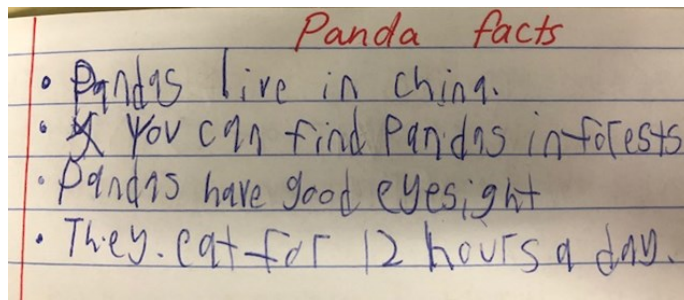 Panda facts
• Pandas live in china.
• You can find Pandas in forests
• Pandas have good eyesight
• They. eat for 12 hours a day.